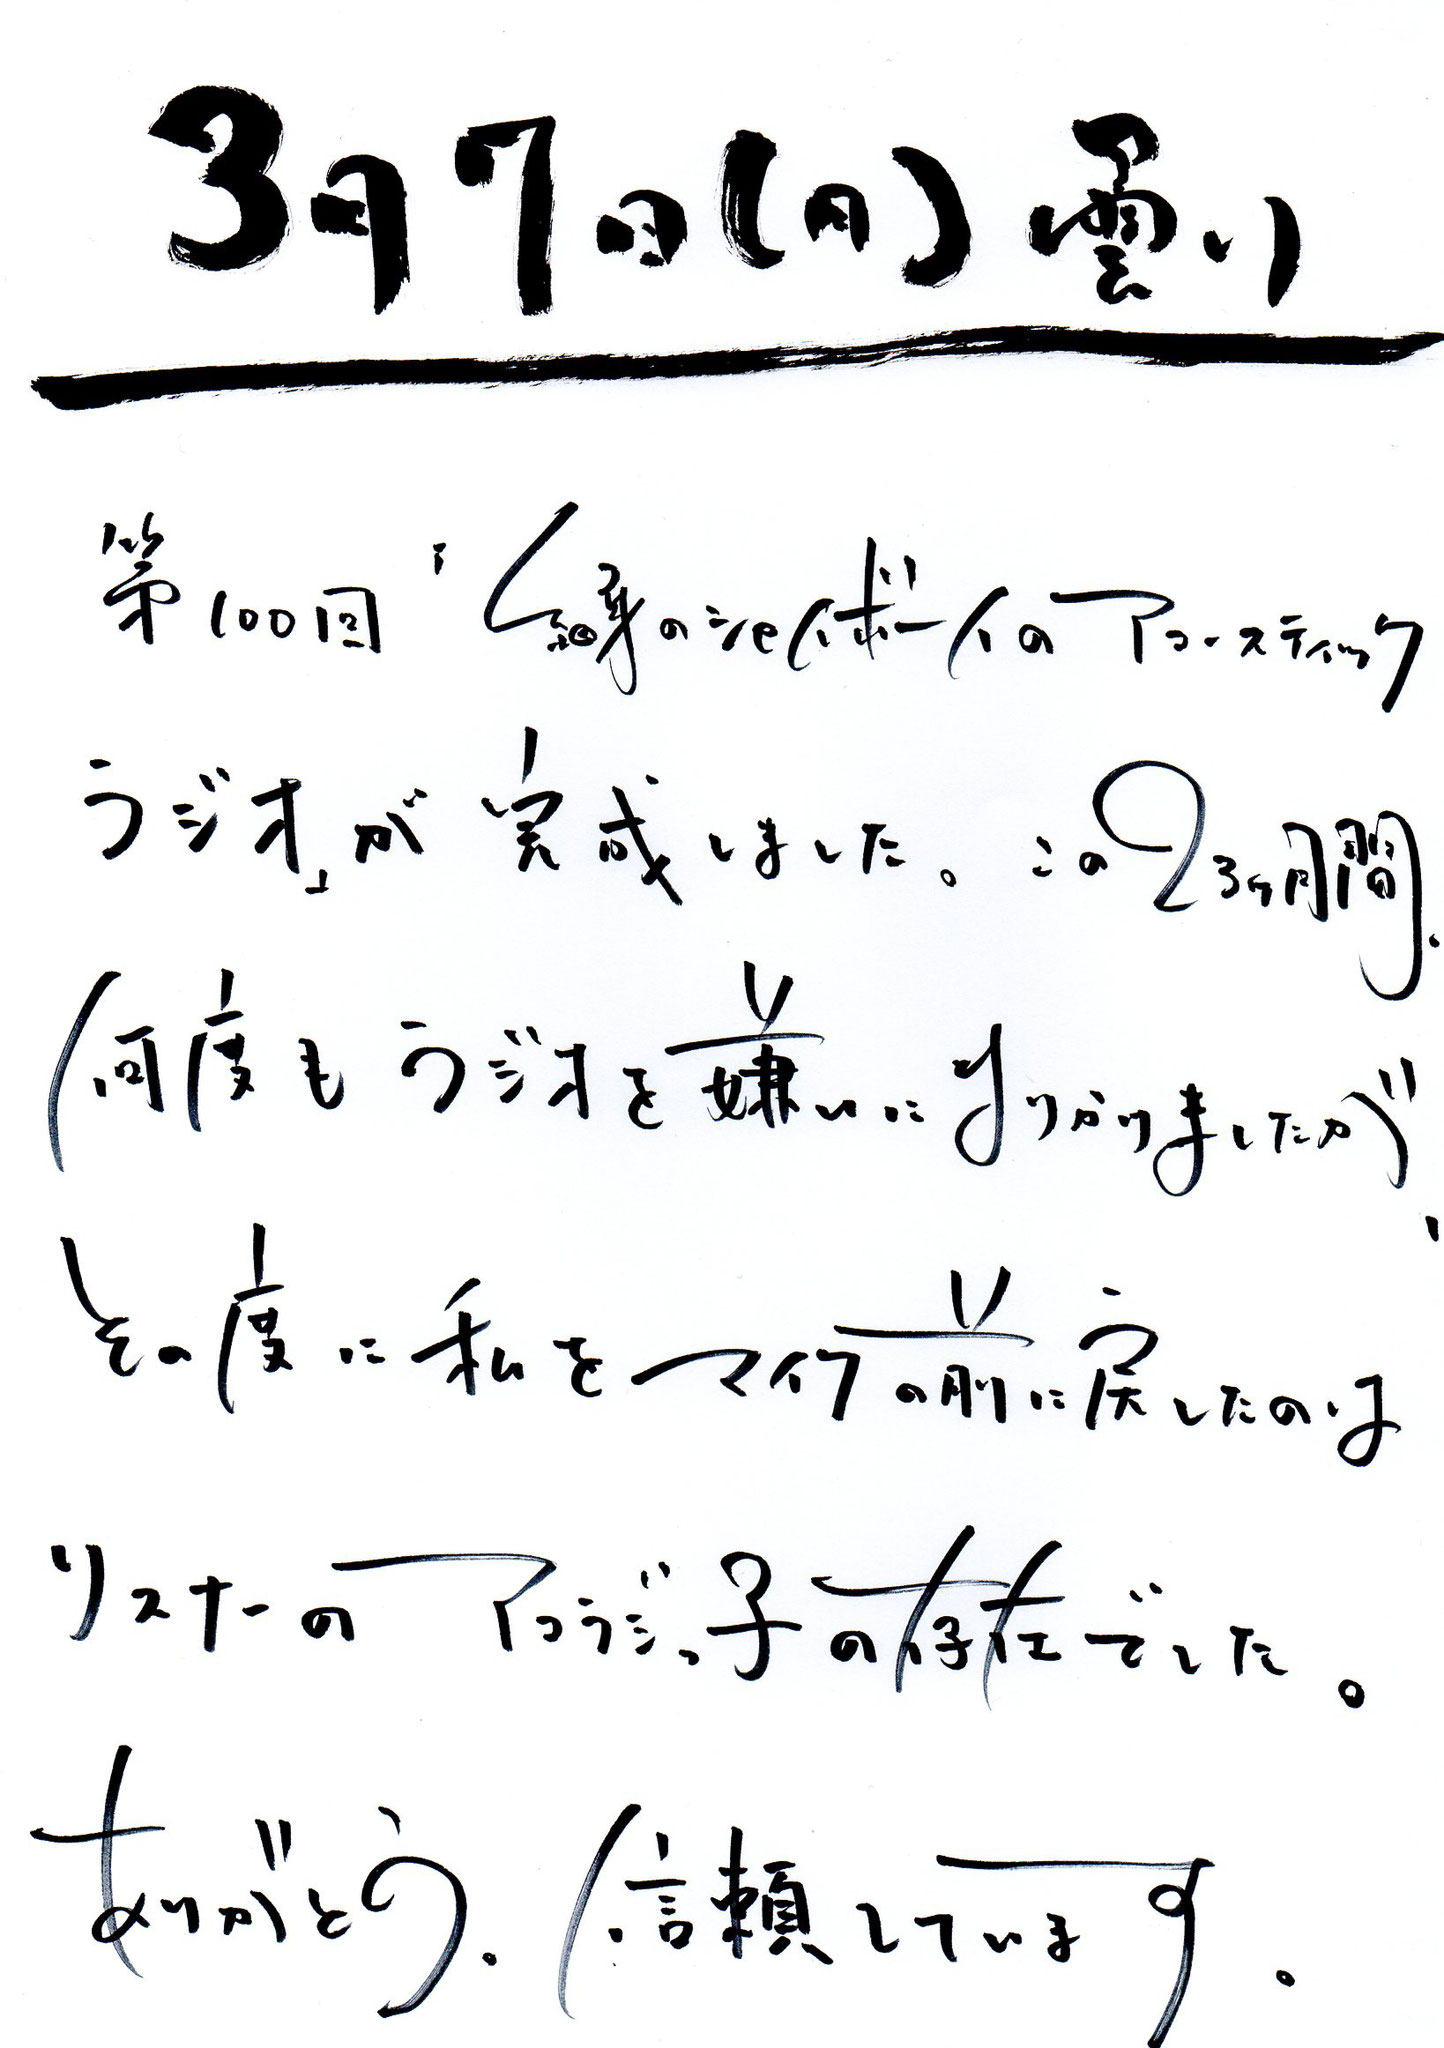 3月7日(月)曇り
第100回「細身のシャイボーイのアコースティック
ラジオ」が完成しました。この23ヶ月間、
何度もラジオを嫌いになりかけましたが、
その度に私をマイクの前に戻したのは
リスナーのアコラジっ子の存在でした。
ありがとう。信頼しています。